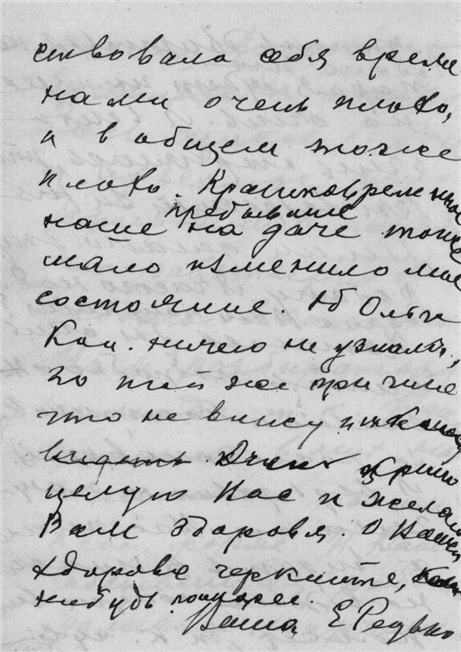 ствовала себя време
нами очень плохо,
и в общем тоже
плохо. Кратковременное
наше пребывание на даче тоже
мало изменило мое
состояние. Об Ольге
Кап. ничего не узнала,
по той же причине
что не вижу
видеть Очень крепко
целую Вас и желаю
Вам здоровья. О Вашем
здоровье черкните,
нибудь поскорее.
Ваша Е Редько